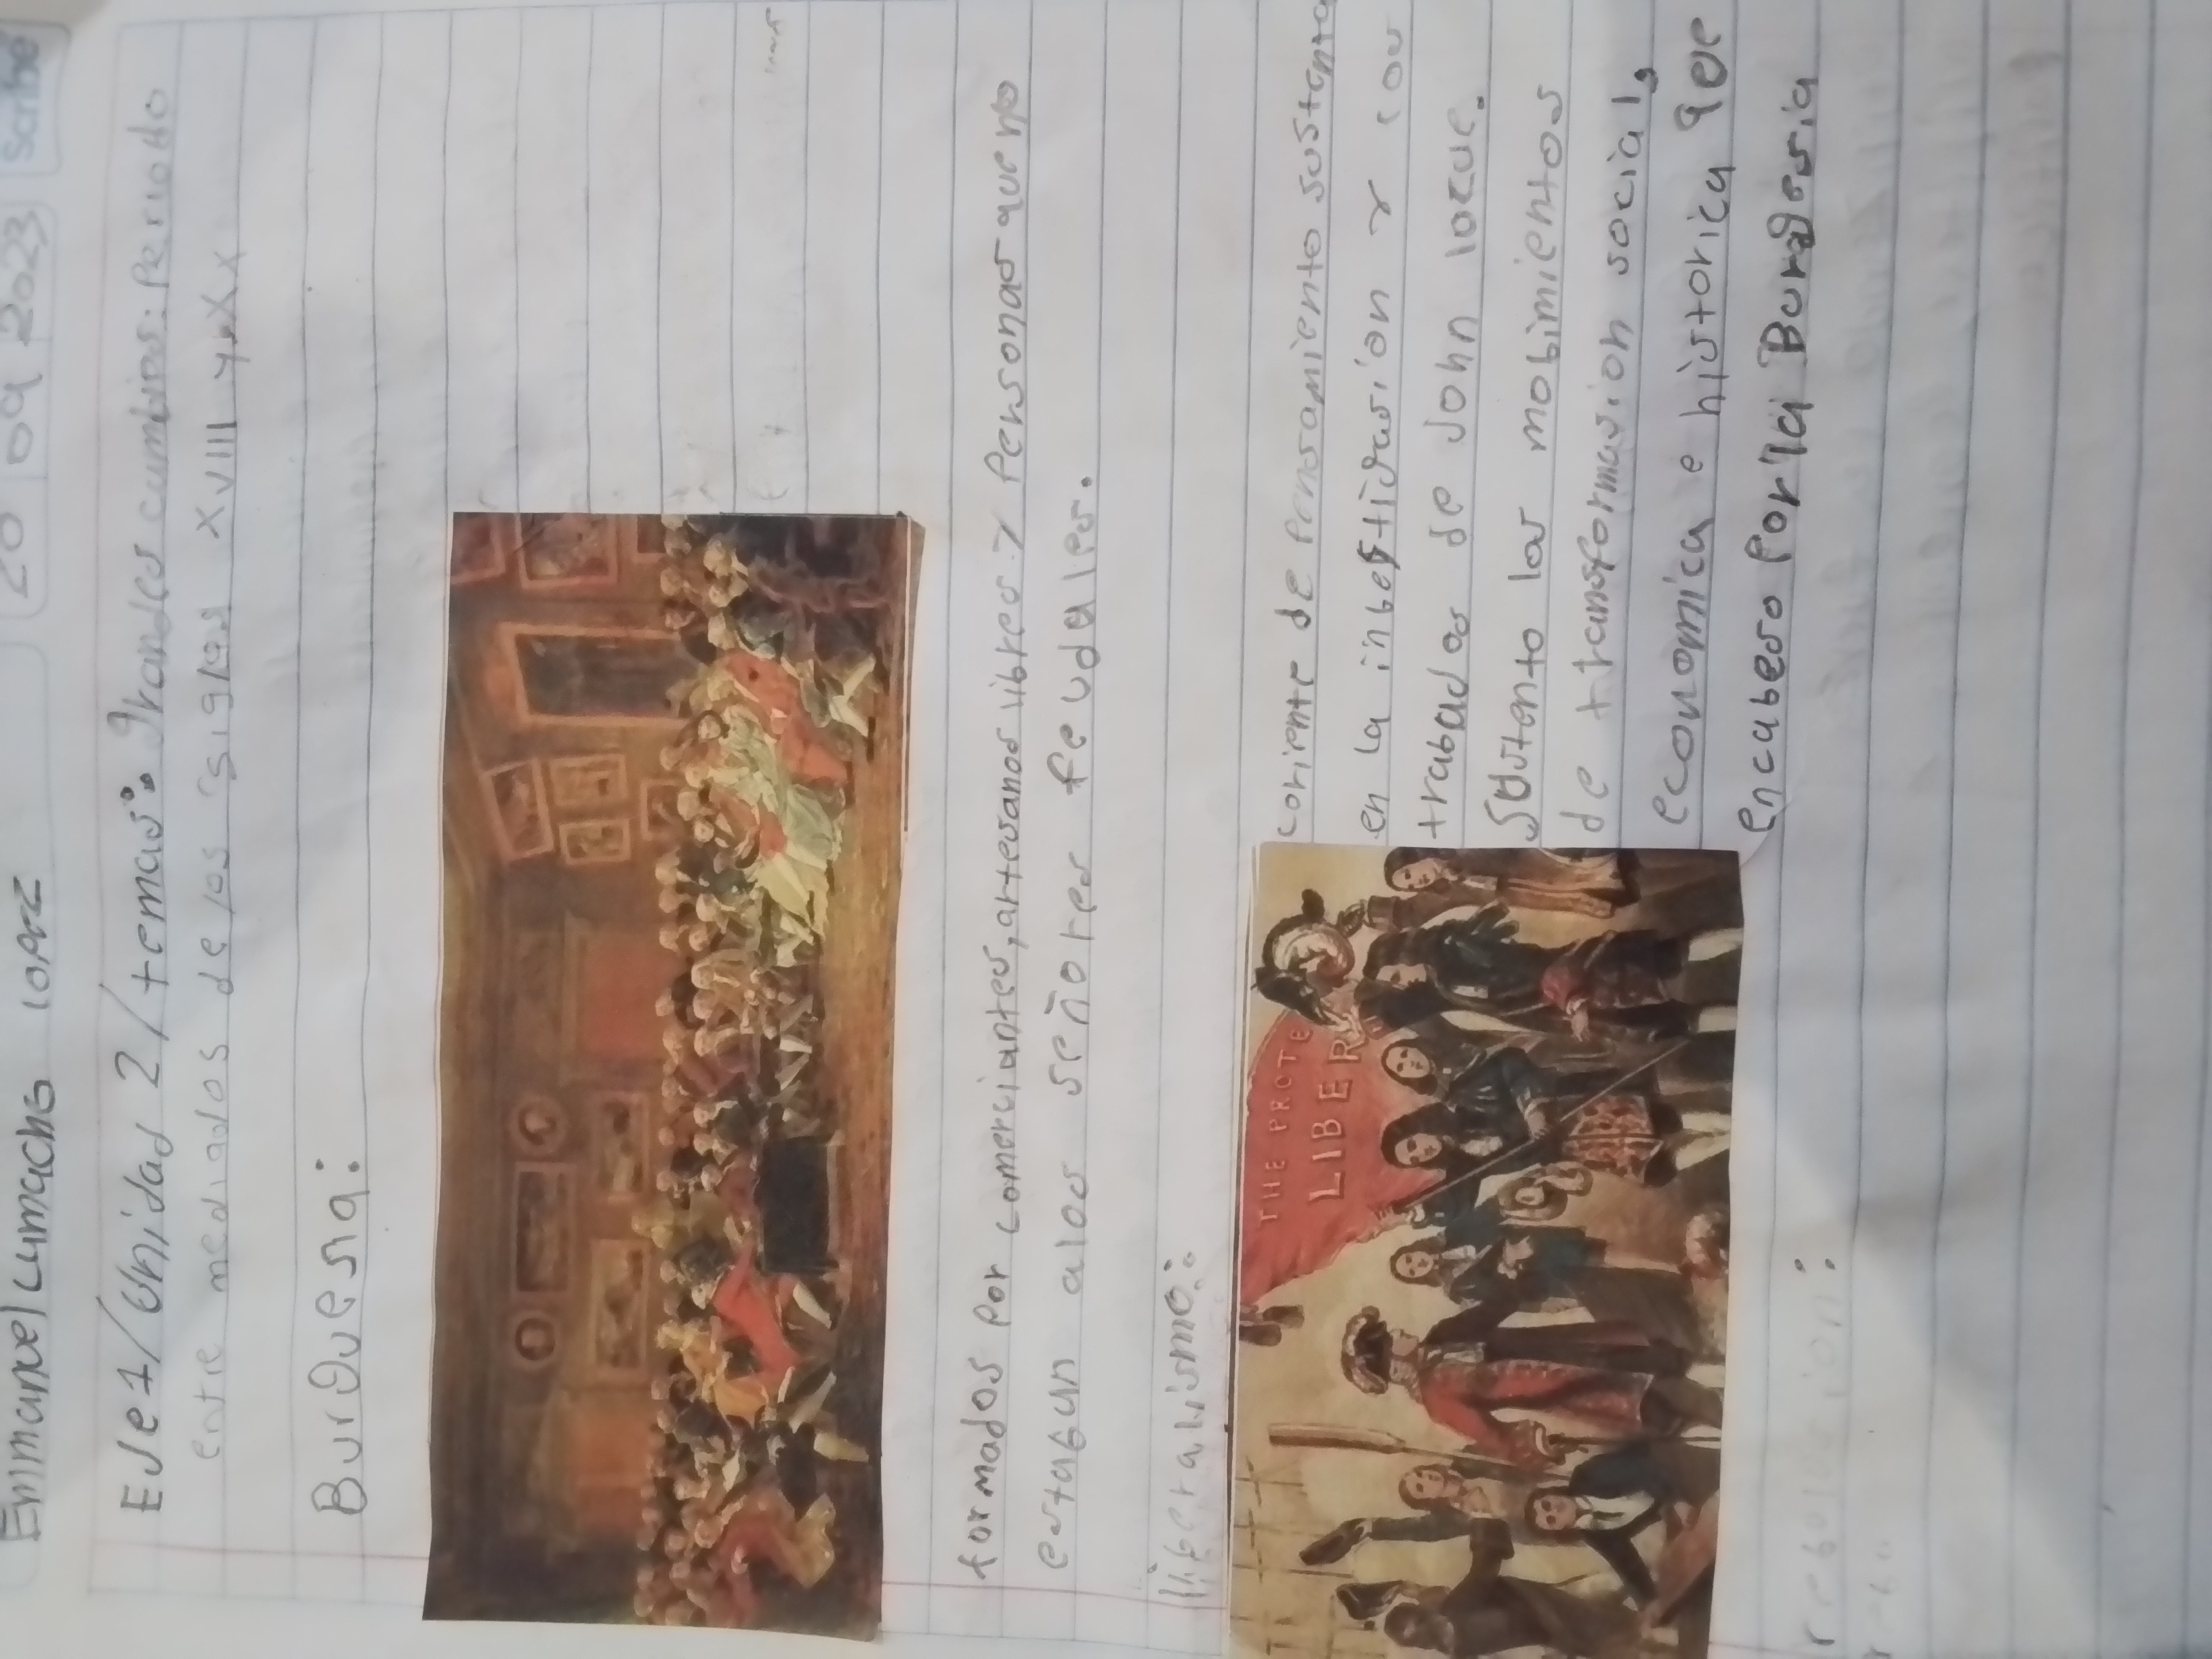 scribe
20 09 2023
Emmanuel Cumacho lopez
Eje 1/Unidad 2/temas: Grandes cambios: Periodo
entre mediados de los siglos XVIII y XX
Burguesia:
formados por comerciantes, artesanos libres y Personas que no
estaban alos señores feudales.
liberalismo:
THE PROTE
LIBER
coriente de Pensamiento sustenta
en la inbestigasion y cou
trabados de John locue.
Sustento los mobimientos
de transformasion social,
economica e historica que
encabeso Por la Burguesia
rebolosion: